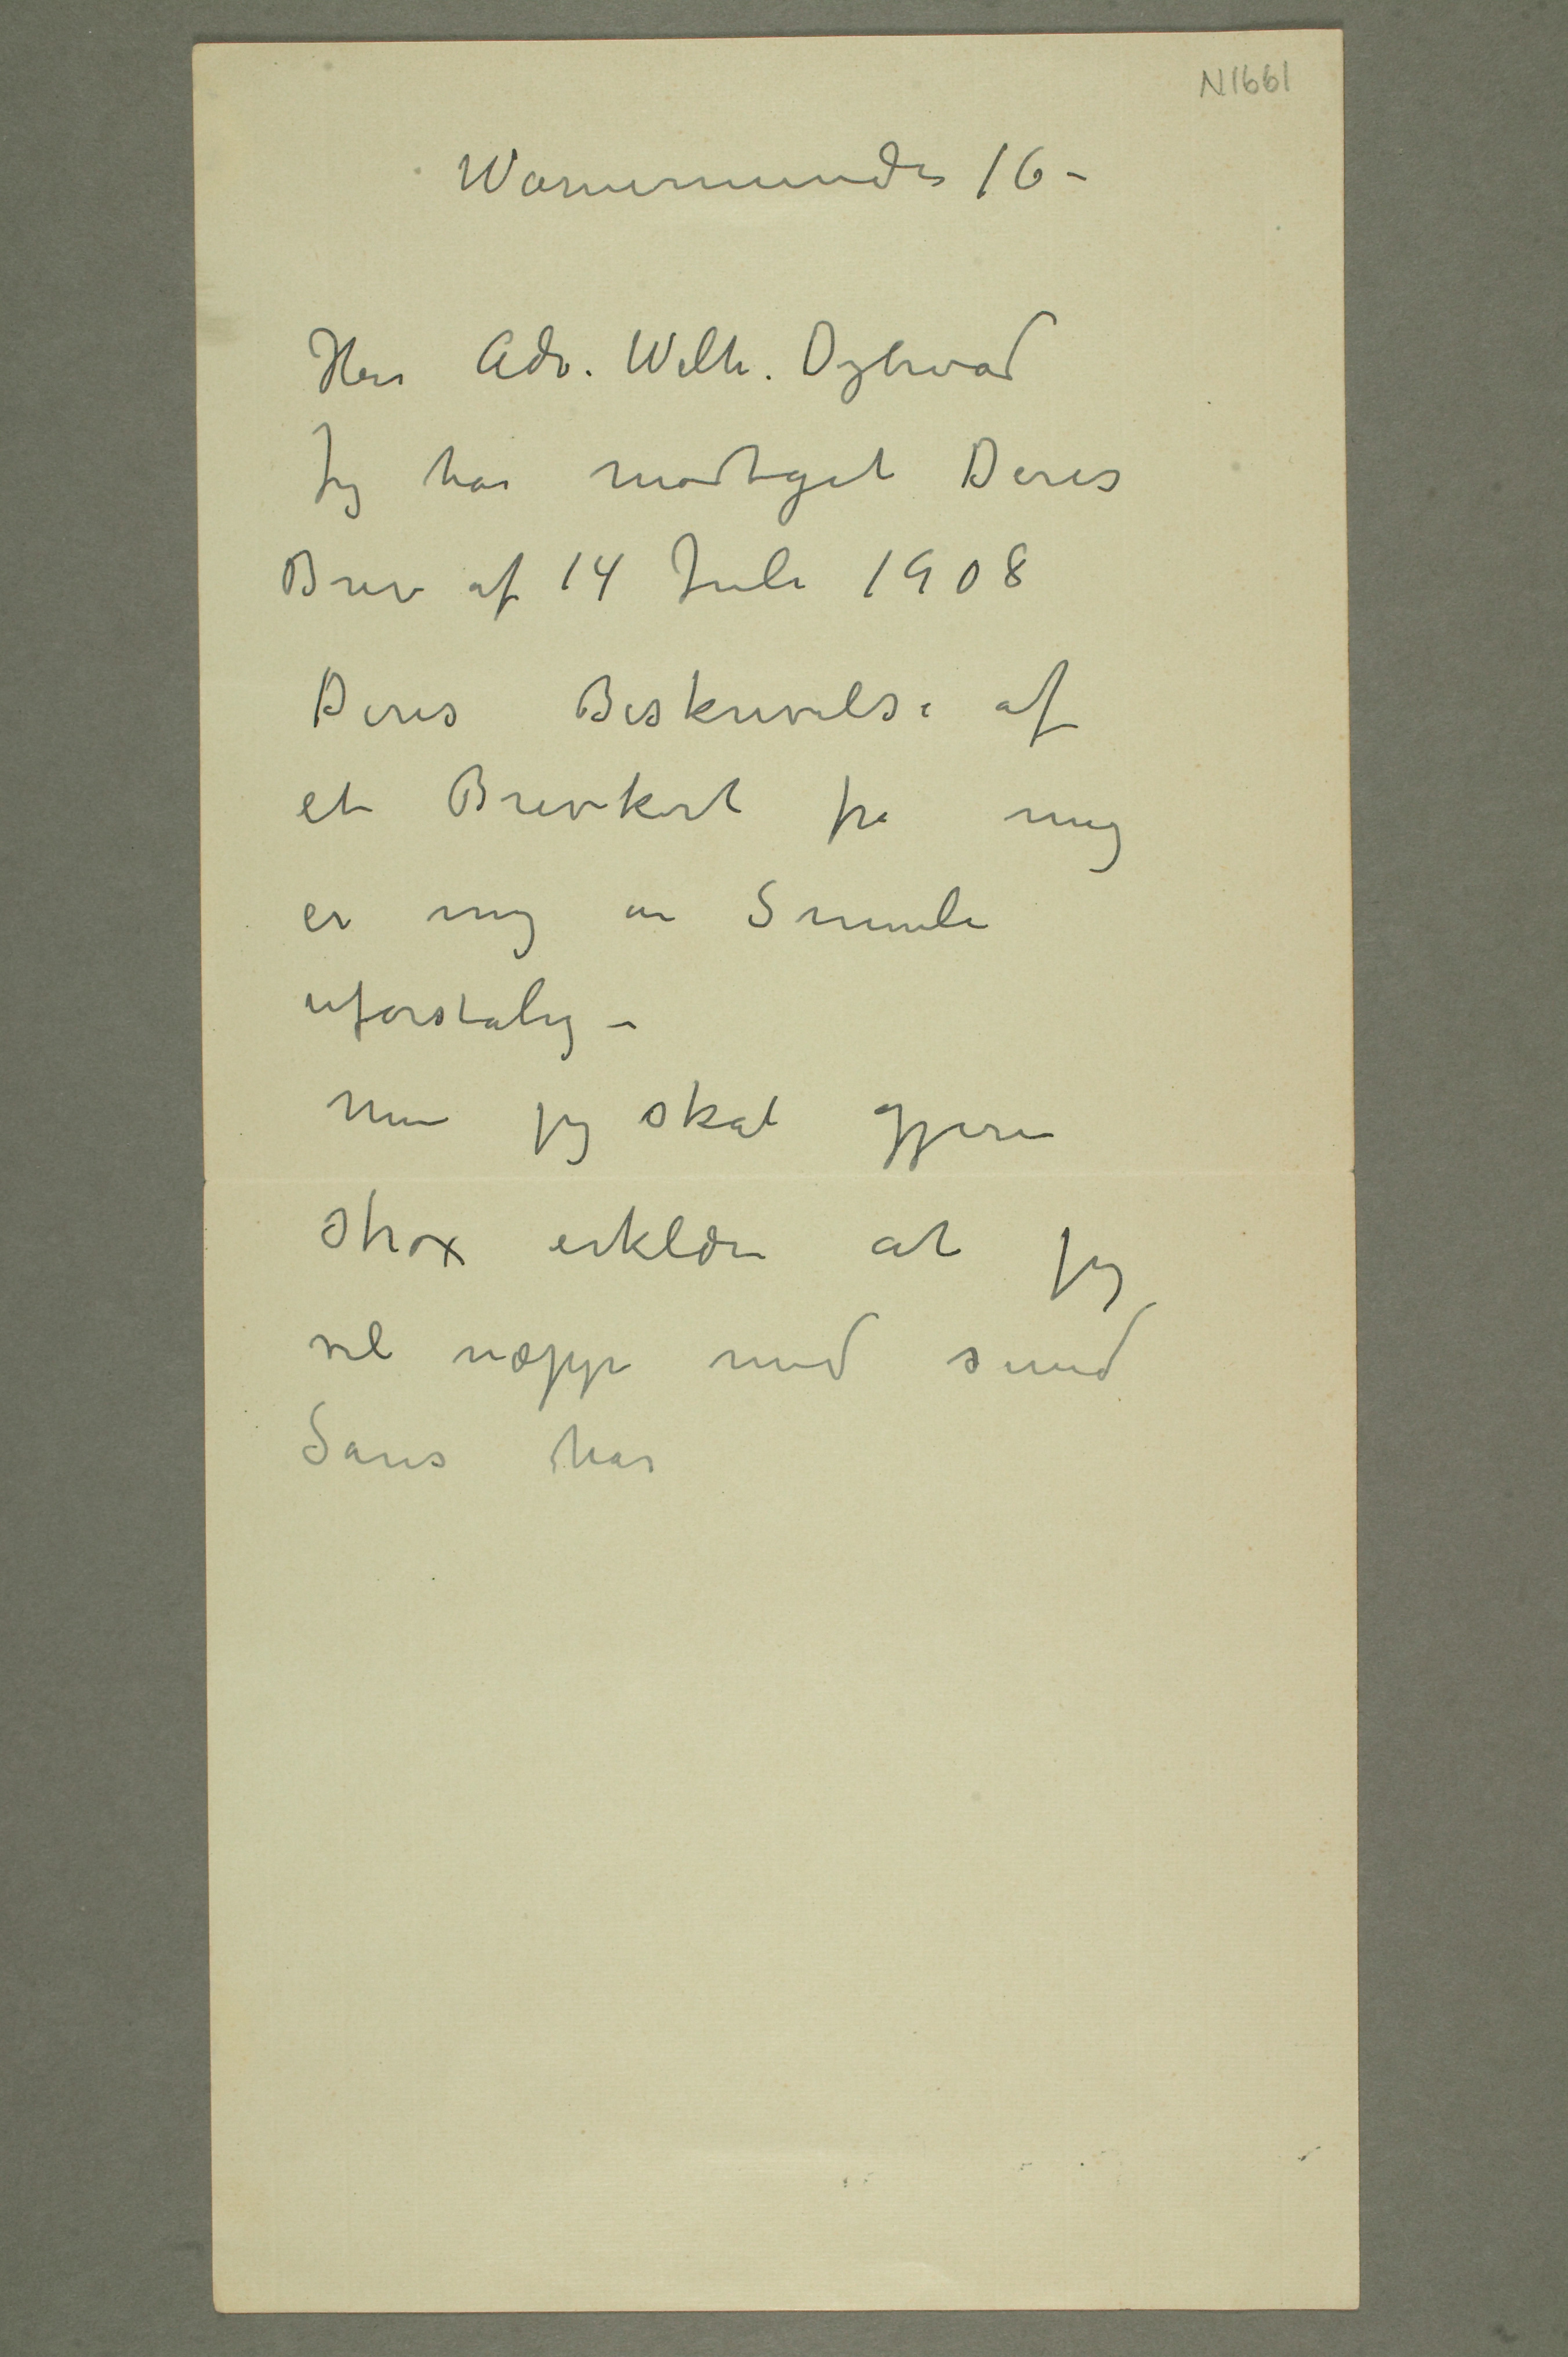 N1661
Warnemünde 16 –
Herr Adv. Wilh. Dybwad
Jeg har modtaget Deres
Brev af 14 Juli 1908
Deres Beskrivelse af
et Brevkort fra mig
er mig en Smule
uforstålig –
men jeg skal gjerne
strax erklære at jeg
vel næppe med sund
Sans har